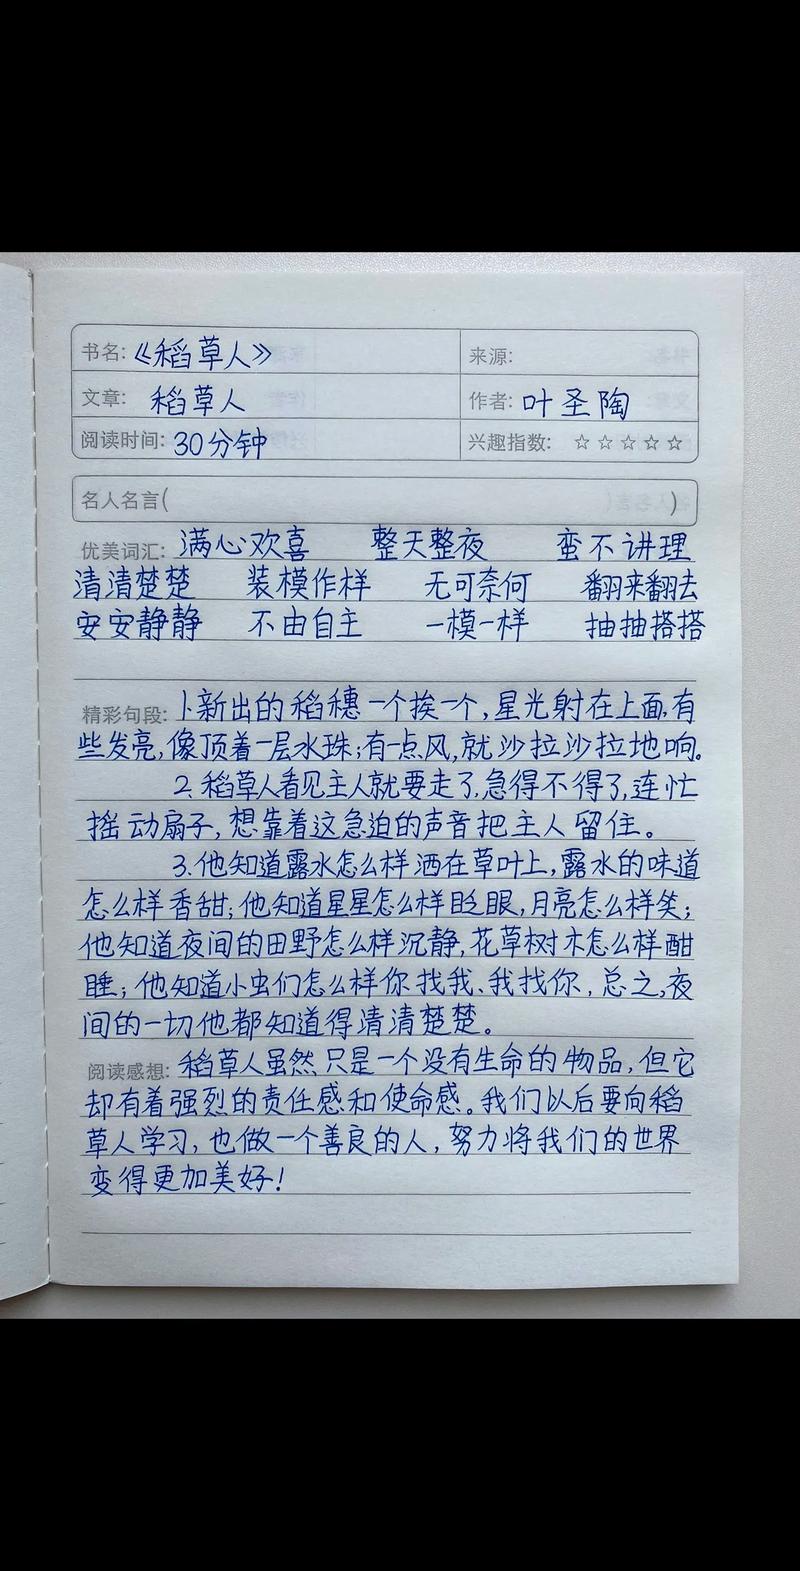 书名:《稻草人》 来源:
文章: 稻草人 作者: 叶圣陶
阅读时间: 30分钟 兴趣指数: ☆☆☆☆☆
名人名言( )
优美词汇: 满心欢喜 整天整夜 蛮不讲理
清清楚楚 装模作样 无可奈何 翻来翻去
安安静静 不由自主 一模一样 抽抽搭搭
精彩句段: 1.新出的稻穗一个挨一个,星光射在上面,有
些发亮,像顶着一层水珠;有一点风,就沙拉沙拉地响。
2.稻草人看见主人就要走了,急得不得了,连忙
摇动扇子,想靠着这急迫的声音把主人留住。
3.他知道露水怎么样洒在草叶上,露水的味道
怎么样香甜;他知道星星怎么样眨眼,月亮怎么样笑;
他知道夜间的田野怎么样沉静,花草树木怎么样酣
睡;他知道小虫们怎么样你找我、我找你,总之,夜
间的一切他都知道得清清楚楚。
阅读感想: 稻草人虽然只是一个没有生命的物品,但它
却有着强烈的责任感和使命感。我们以后要向稻
草人学习,也做一个善良的人,努力将我们的世界
变得更加美好!